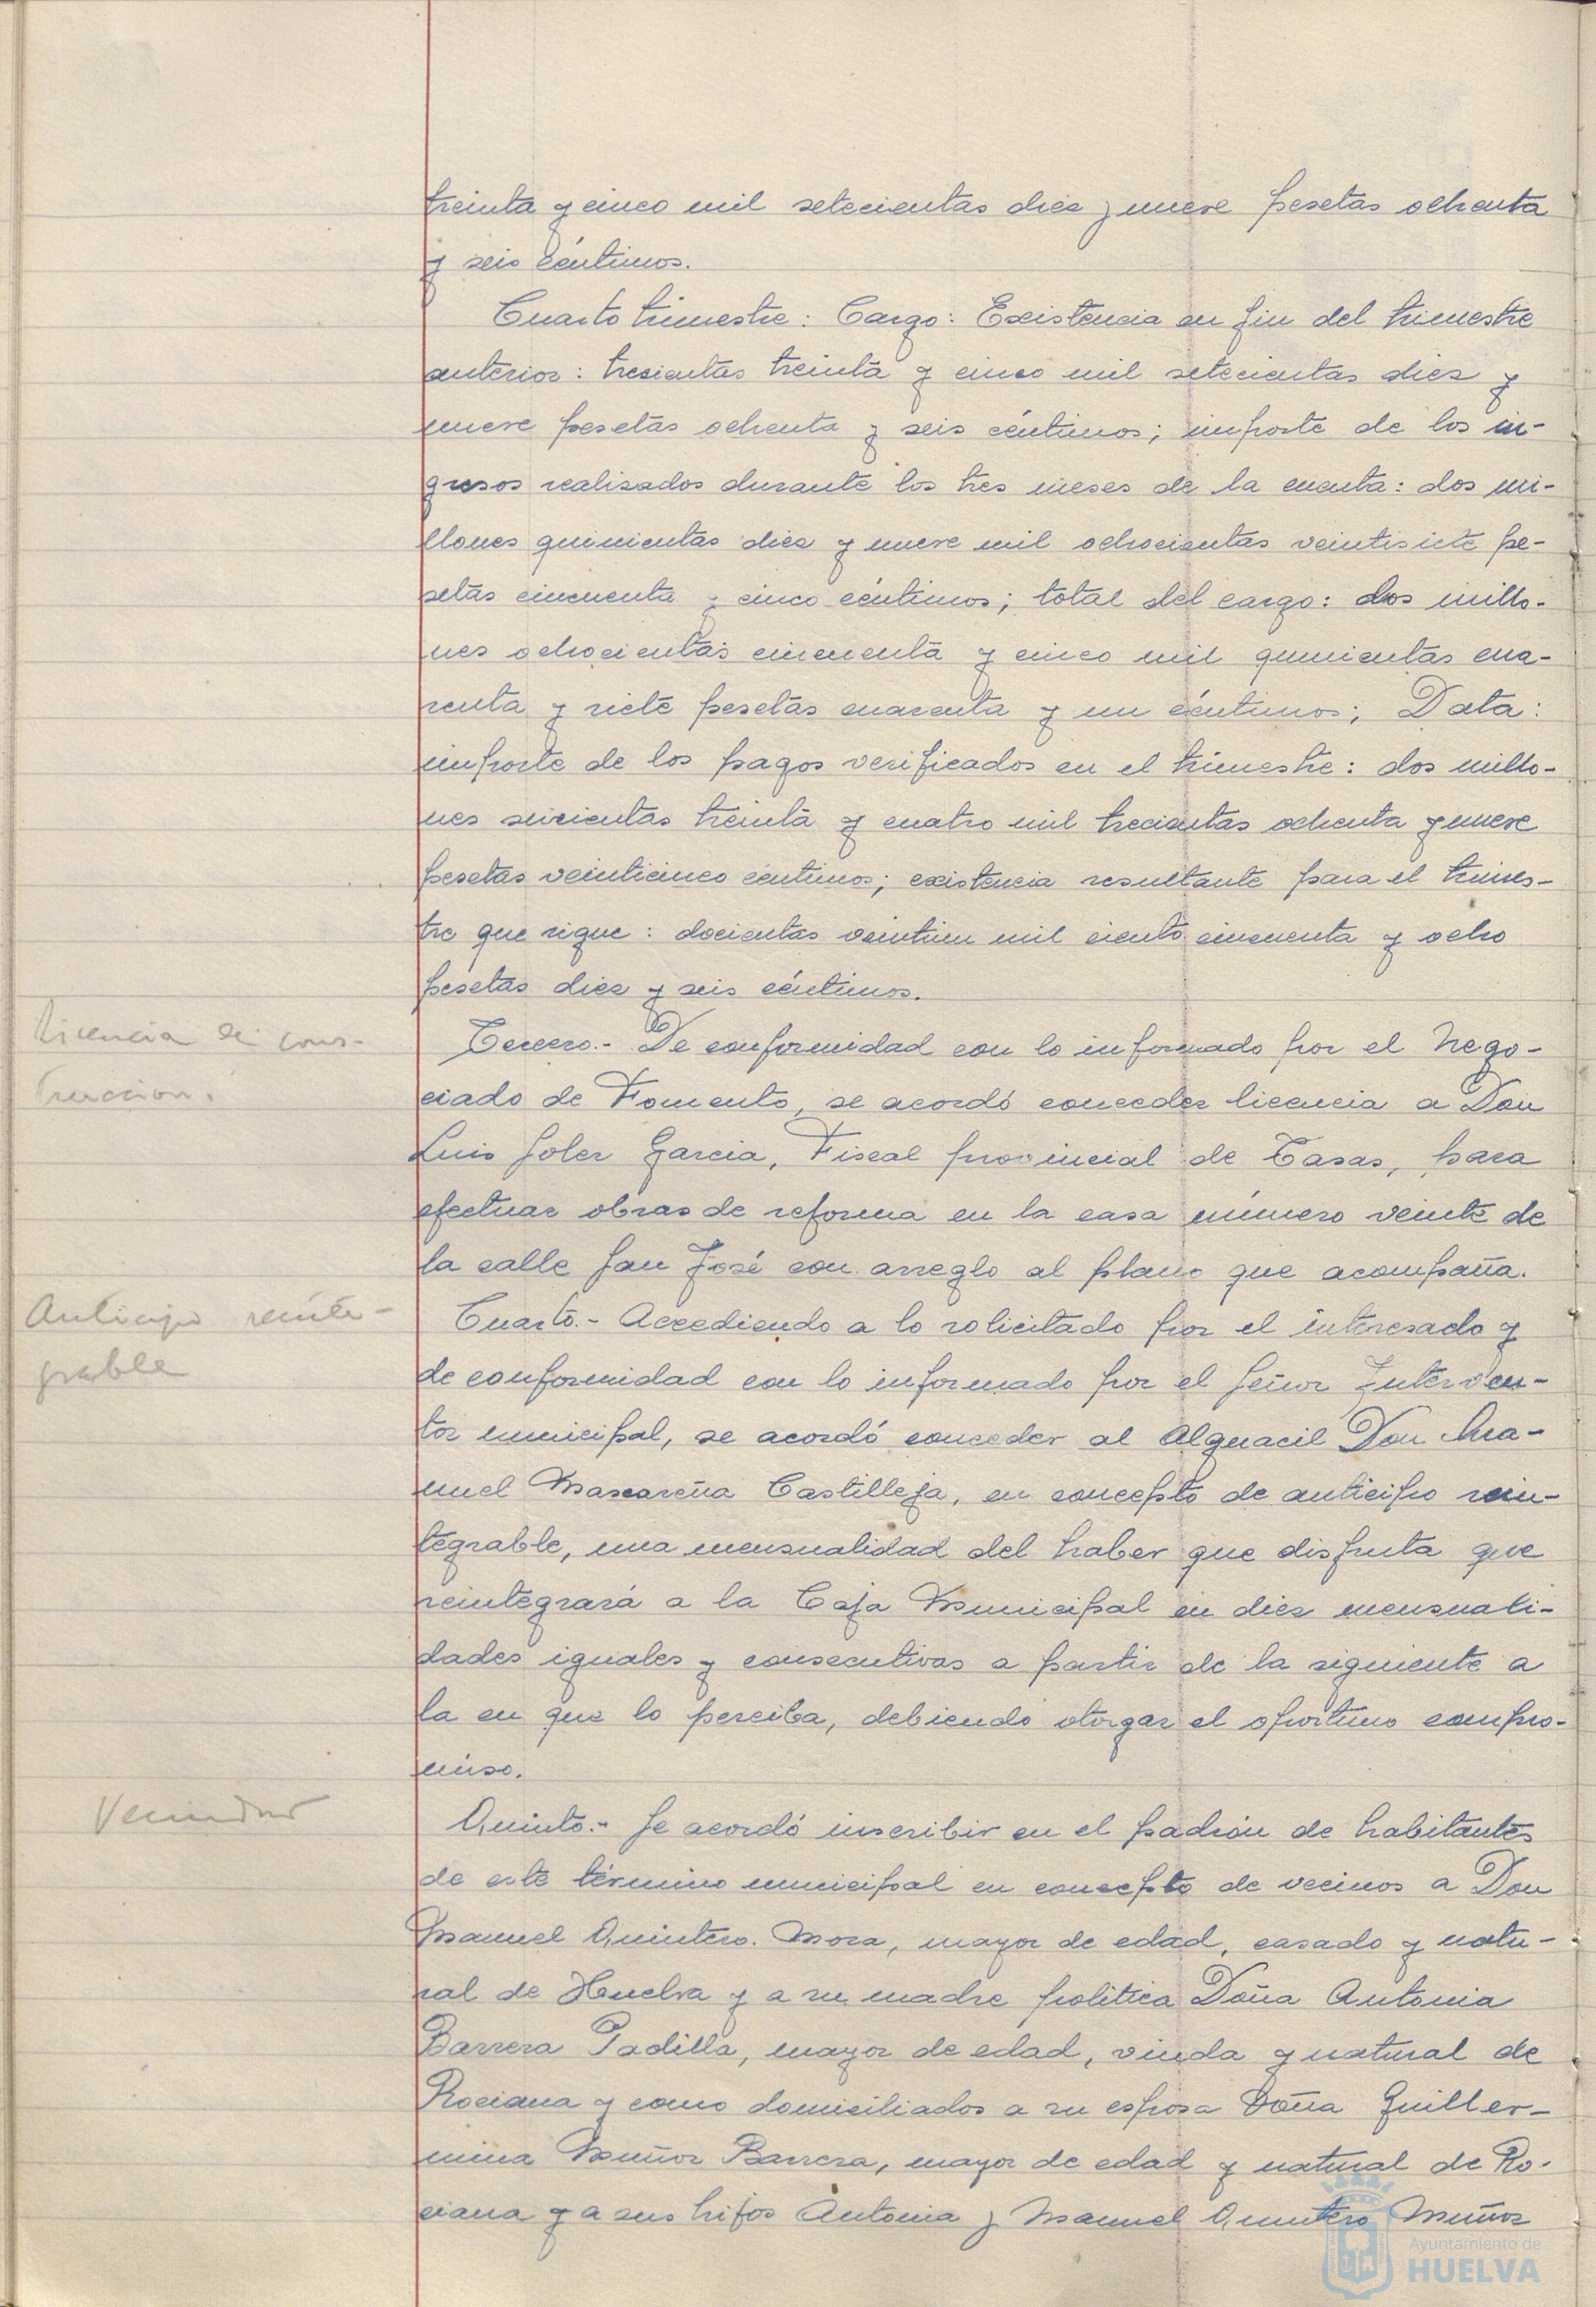 treinta y cinco mil setecientas diez y nueve pesetas ochenta
y seis céntimos.
Cuarto trimestre: Cargo: Existencia en fin del trimestre
anterior: tresientas treinta y cinco mil setecientas diez y
nueve pesetas ochenta y seis céntimos; importe de los in-
gresos realizados durante los tres meses de la cuenta: dos mi-
llones quinientas diez y nueve mil ochocientas veintisiete pe-
setas cincuenta y cinco céntimos; total del cargo: dos millo-
nes ochocientas cincuenta y cinco mil quinientas cua-
renta y siete pesetas cuarenta y un céntimos; Data:
importe de los pagos verificados en el trimestre: dos millo-
nes seicientas treinta y cuatro mil trecientas ochenta y nueve
pesetas veinticinco céntimos; existencia resultante para el trimes-
tre que sigue: docientas veintiun mil ciento cincuenta y ocho
pesetas diez y seis céntimos.
Licencia de cons-
truccion.
Tercero.- De conformidad con lo informado por el Nego-
ciado de Fomento, se acordó conceder licencia a Don
Luis Soler Garcia, Fiscal provincial de Tasas, para
efectuar obras de reforma en la casa número veinte de
la calle San José con arreglo al plano que acompaña.
Anticipo reinte-
grable
Cuarto.- Accediendo a lo solicitado por el interesado y
de conformidad con lo informado por el Señor Interven-
tor municipal, se acordó conceder al Alguacil Don Ma-
nuel Mascareña Castilleja, en concepto de anticipo rein-
tegrable, una mensualidad del haber que disfruta que
reintegrará a la Caja Municipal en diez mensuali-
dades iguales y consecutivas a partir de la siguiente a
la en que lo perciba, debiendo otorgar el oportuno compro-
miso.
Vecindad
Quinto.- Se acordó inscribir en el padrón de habitantes
de este término municipal en concepto de vecinos a Don
Manuel Quintero Mora, mayor de edad, casado y natu-
ral de Huelva y a su madre politica Doña Antonia
Barrera Padilla, mayor de edad, viuda y natural de
Rociana y como domiciliados a su esposa Doña Guiller-
mina Muñoz Barrera, mayor de edad y natural de Ro-
ciana y a sus hijos Antonia y Manuel Quintero Muñoz
Ayuntamiento de
HUELVA